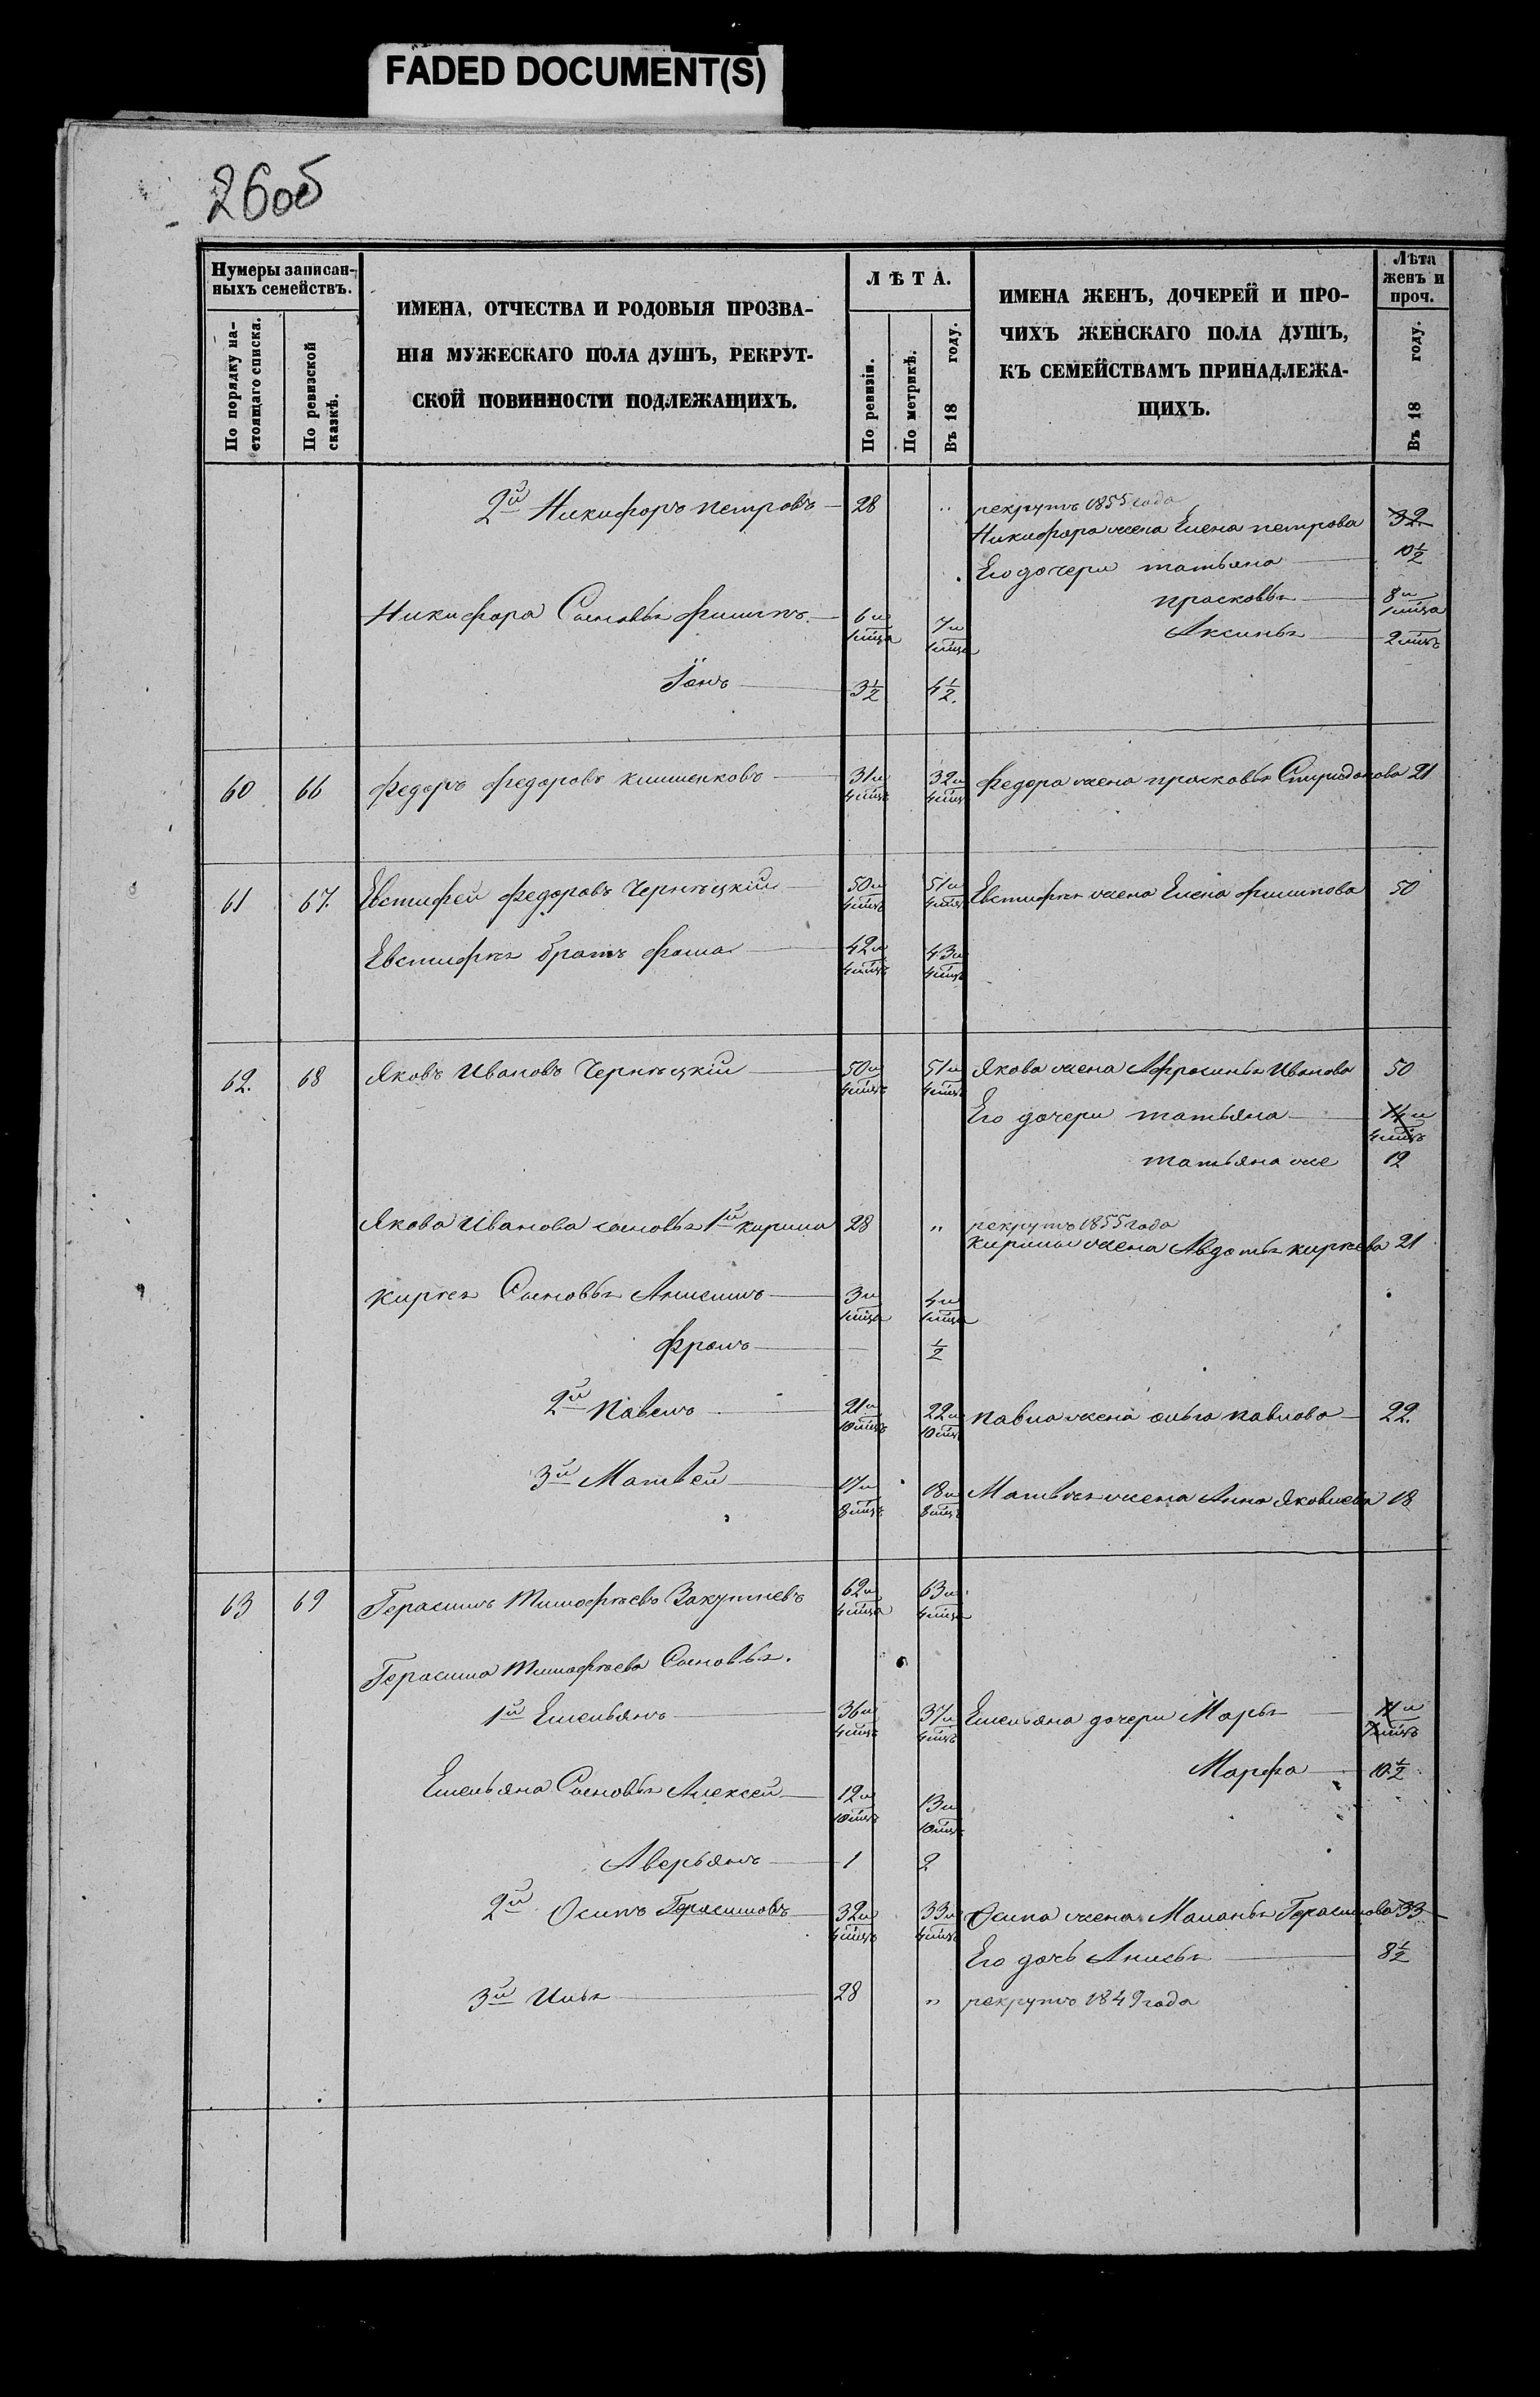 FADED DOCUMENT(S)
26 об
Нумеры записан-
ныхъ семействъ.
По порядку на-
стоящаго списка.
По ревизской
сказкѣ.
ИМЕНА, ОТЧЕСТВА И РОДОВЫЯ ПРОЗВА-
НІЯ МУЖЕСКАГО ПОЛА ДУШЪ, РЕКРУТ-
СКОЙ ПОВИННОСТИ ПОДЛЕЖАЩИХЪ.
ЛѢТА.
По ревизіи.
По метрикѣ.
Въ 18 году.
ИМЕНА ЖЕНЪ, ДОЧЕРЕЙ И ПРО-
ЧИХЪ ЖЕНСКАГО ПОЛА ДУШЪ,
КЪ СЕМЕЙСТВАМЪ ПРИНАДЛЕЖА-
ЩИХЪ.
Лѣта
женъ и
проч.
Въ 18 году.
2й Никифоръ петровъ 28 " рекрутъ 1855 года
Никифора жена Елена петрова 32
Его дочери татьяна 10½
прасковья 8 и 1 мѣца
Никифора Сыновья филипъ 6 и 1 мѣца 7 и 1 мѣца Аксинья 2 мѣцъ
Іонъ 3½ 4½
60 66 федоръ федоровъ климпенковъ 31 и 4 мѣцъ 32 и 4 мѣцъ федора жена прасковья Спиридонова 21
61 67. Евстифей федоровъ Чернѣцкій 50 и 4 мѣцъ 51 и 4 мѣцъ Евстифѣя жена Елена филипова 50
Евстифѣя братъ фома 42 и 4 мѣцъ 43 и 4 мѣцъ
62. 68 Яковъ Ивановъ Чернѣцкій 50 и 4 мѣцъ 51 и 4 мѣцъ Якова жена Афросинья Иванова 50
Его дочери татьяна 14 и 4 мѣцъ
татьяна же 12
Якова Иванова сыновья 1й кирила 28 " рекрутъ 1855 года
кирилы жена Авдотья кирѣева 21
кирѣя Сыновья Анисимъ 3 и 1 мѣца 4 и 1 мѣца
фролъ — ½
2й павелъ 21 и 10 мѣцъ 22 и 10 мѣцъ павла жена ольга павлова 22.
3й Матвей 17 и 8 мѣцъ 18 и 8 мѣцъ Матвѣя жена Анна Яковлева 18
63 69 Герасимъ Тимофѣевъ Закутневъ 62 и 4 мѣца 63 и 4 мѣца
Герасима Тимофѣева Сыновья.
1й Емельянъ 36 и 4 мѣцъ 37 и 4 мѣцъ Емельяна дочери Марья 11 и 7 мѣцъ
Марфа 10½
Емельяна Сыновья Алексей 12 и 10 мѣцъ 13 и 10 мѣцъ
Аверьянъ 1 2
2й Осипъ Герасимовъ 32 и 4 мѣцъ 33 и 4 мѣцъ Осипа жена Маланья Герасимова 33
Его дочь Анисья 8½
3й Илья 28 " рекрутъ 1849 года